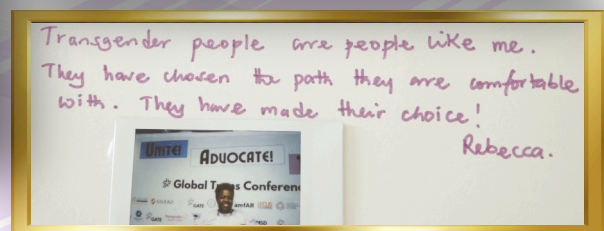 Transgender people are people like me.
They have chosen the path they are comfortable
with. They have made their choice!
Rebecca.
UNITE!
ADVOCATE!
Global Trans Conferenc
GATE
amfAR
GATE